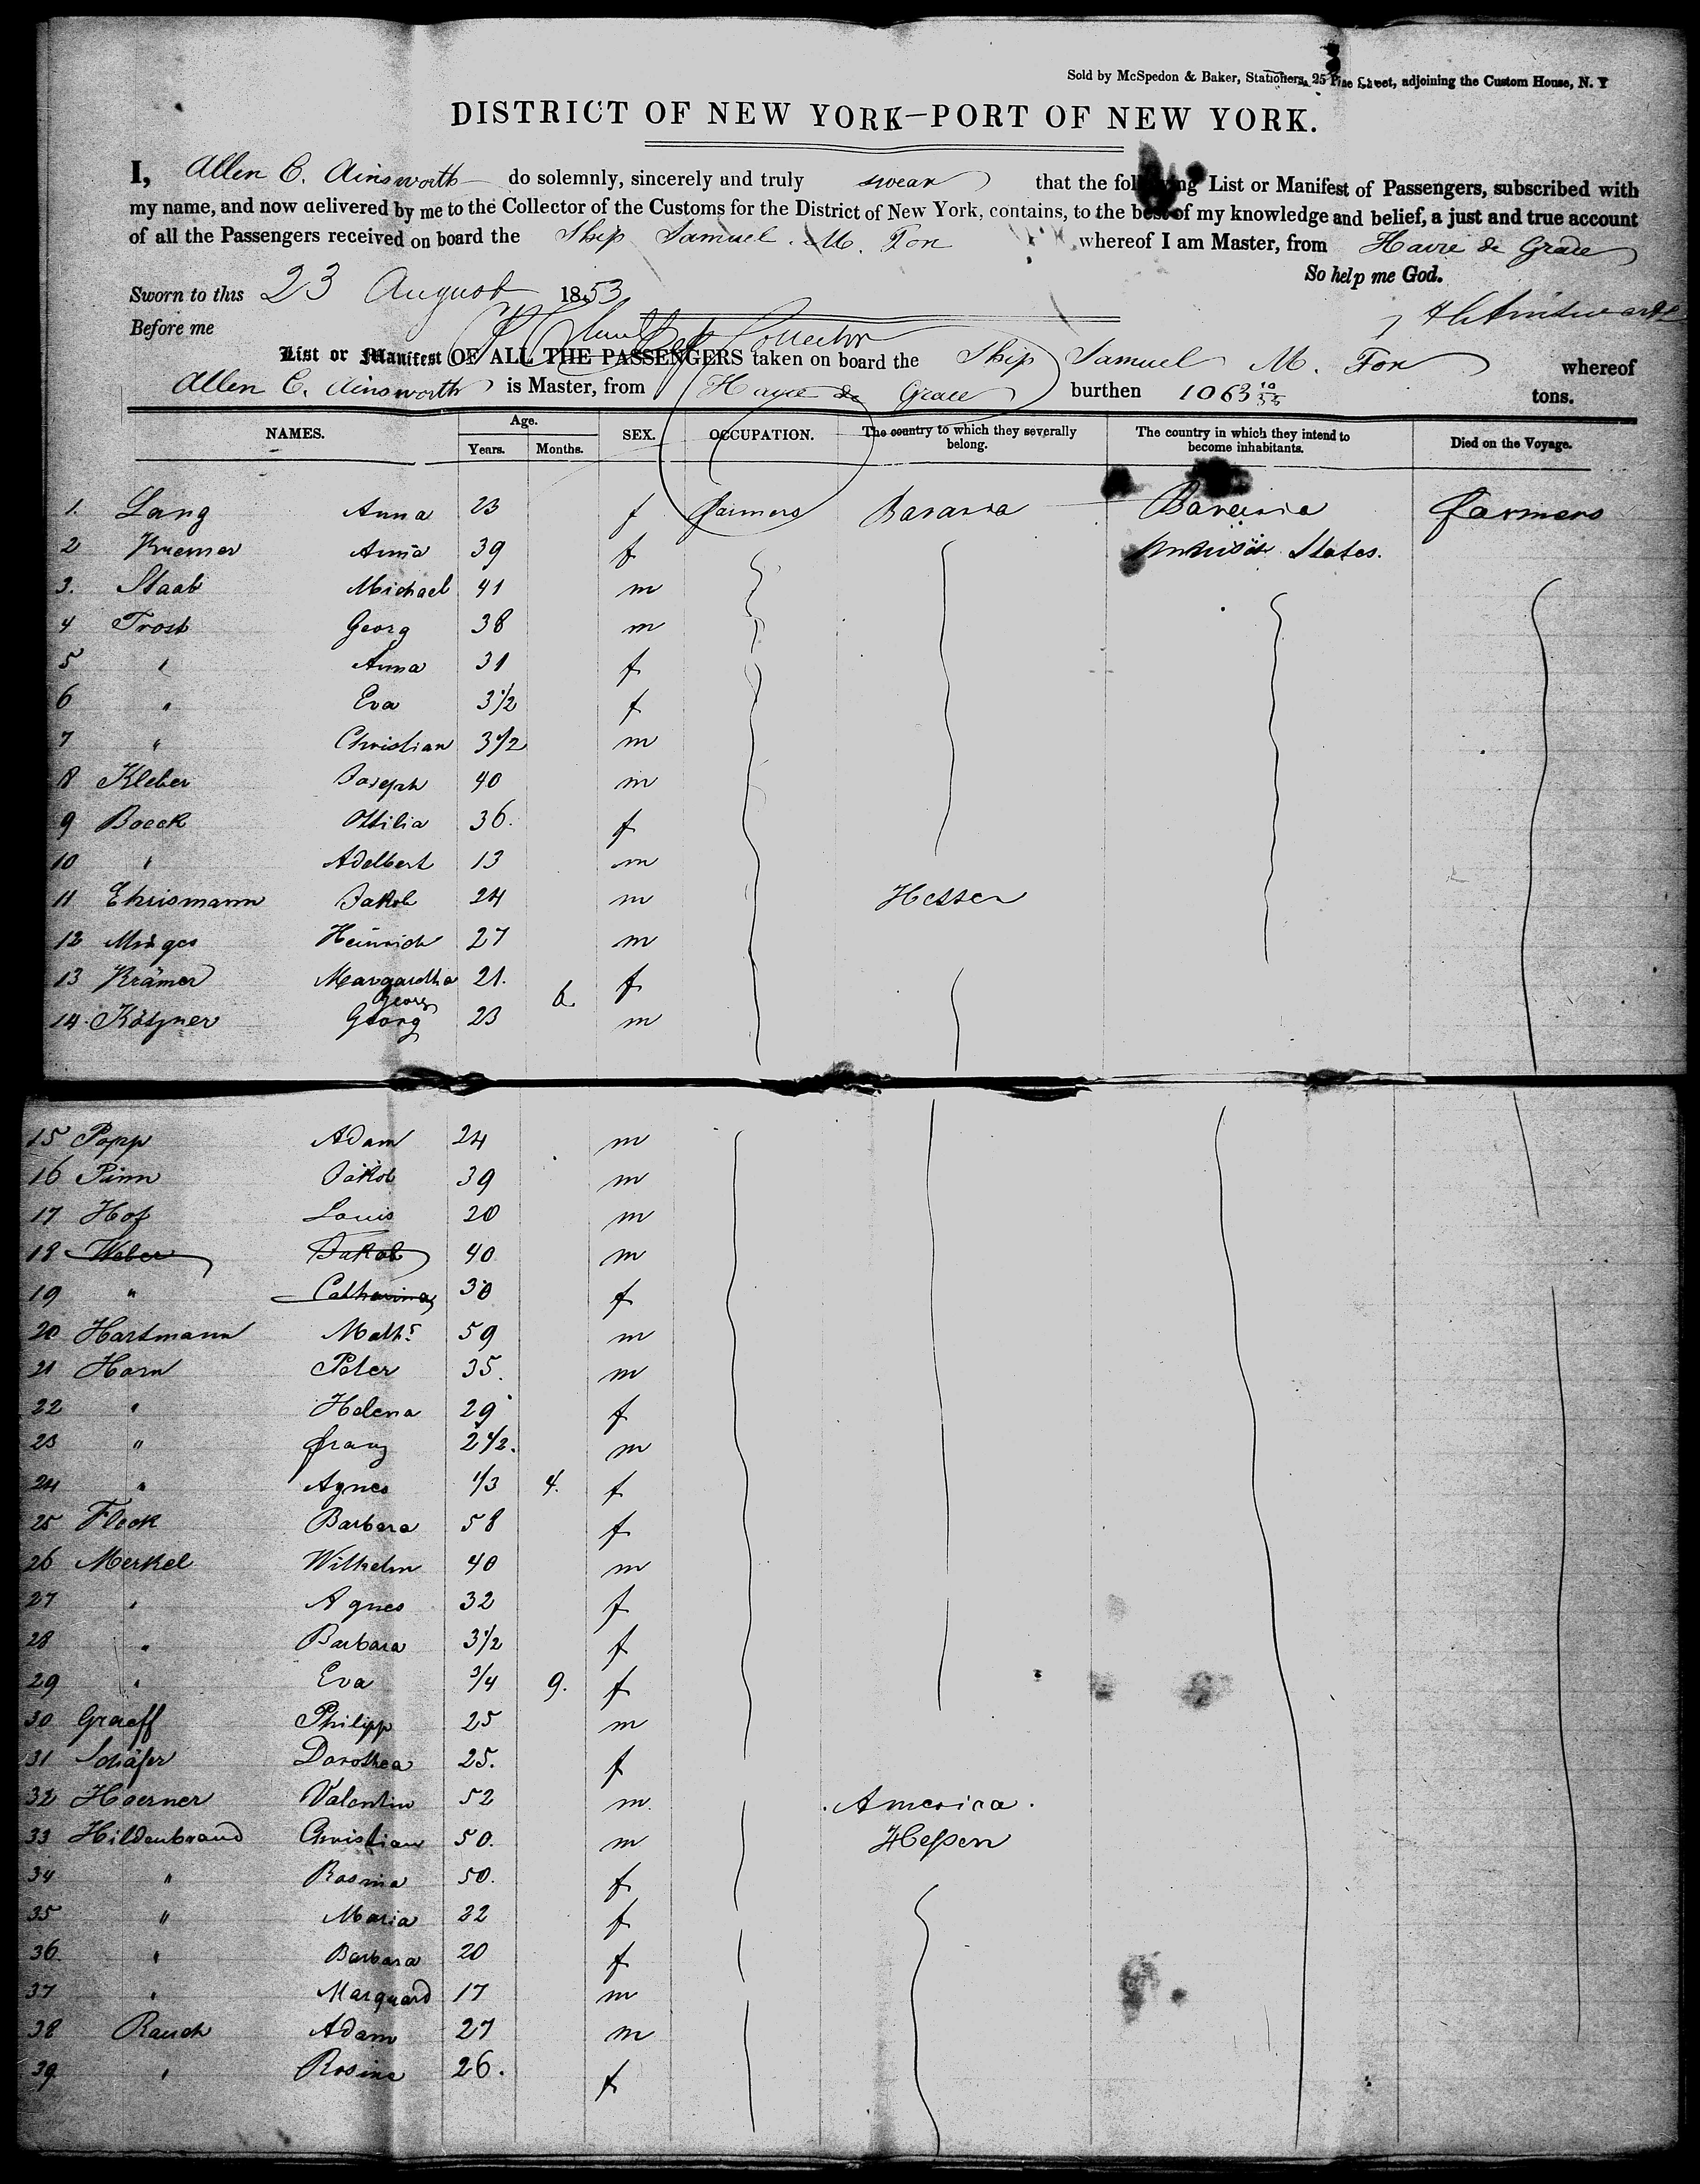 Sold by McSpedon & Baker, Stationers, 25 Pine Street, adjoining the Custom House, N. Y
DISTRICT OF NEW YORK—PORT OF NEW YORK.
I, Allen C. Ainsworth do solemnly, sincerely and truly swear that the following List or Manifest of Passengers, subscribed with
my name, and now delivered by me to the Collector of the Customs for the District of New York, contains, to the best of my knowledge and belief, a just and true account
of all the Passengers received on board the Ship Samuel M. Fox whereof I am Master, from Havre de Grace
So help me God.
Sworn to this 23 August 1853
Before me Collector
List or Manifest OF ALL THE PASSENGERS taken on board the Ship Samuel M. Fox whereof
Allen C. Ainsworth is Master, from Havre de Grace burthen 1063 tons.
NAMES. Age. Years. Months. SEX. OCCUPATION. The country to which they severally belong. The country in which they intend to become inhabitants. Died on the Voyage.
1. Lang Anna 23 f farmers Bavaria Bavaria farmers
2 Kremer Anna 39 f States.
3. Staab Michael 41 m
4 Trost Georg 38 m
5 " Anna 31 f
6 " Eva 3 1/2 f
7 " Christian 3 1/2 m
8 Kleber Joseph 40 m
9 Boeck Ottilia 36. f
10 " Adelbert 13 m
11 Ehrismann Jakob 24 m Hessen
12 Heinrich 27 m
13 Krämer Margaretha 21. f
Georg 6
14. Georg 23 m
15 Popp Adam 24 m
16 Jakob 39 m
17 Hof Louis 20 m
18 Weber Jakob 40 m
19 " Catharina 30 f
20 Hartmann Maths 59 m
21 Horn Peter 35. m
22 " Helena 29 f
23 " Franz 2 1/2. m
24 " Agnes 1/3 4. f
25 Fleck Barbara 58 f
26 Merkel Wilhelm 40 m
27 " Agnes 32 f
28 " Barbara 3 1/2 f
29 " Eva 3/4 9. f
30 Graeff Philipp 25 m
31 Schäfer Dorothea 25. f
32 Hoerner Valentin 52 m. America.
33 Hildenbrand Christian 50. m Heßen
34 " Rosina 50. f
35 " Maria 22 f
36 " Barbara 20 f
37 " Marquard 17 m
38 Rauch Adam 27 m
39 " Rosina 26. f